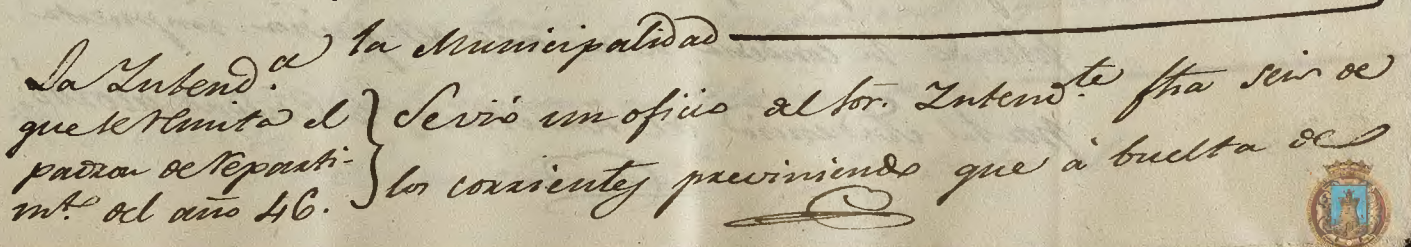 la Municipalidad
La Intend.ª
que se remita el
padron de repartimt.º del año 46.
Se vió un oficio del Sor. Intend.te fha seis de
los corrientes previniendo que à buelta de